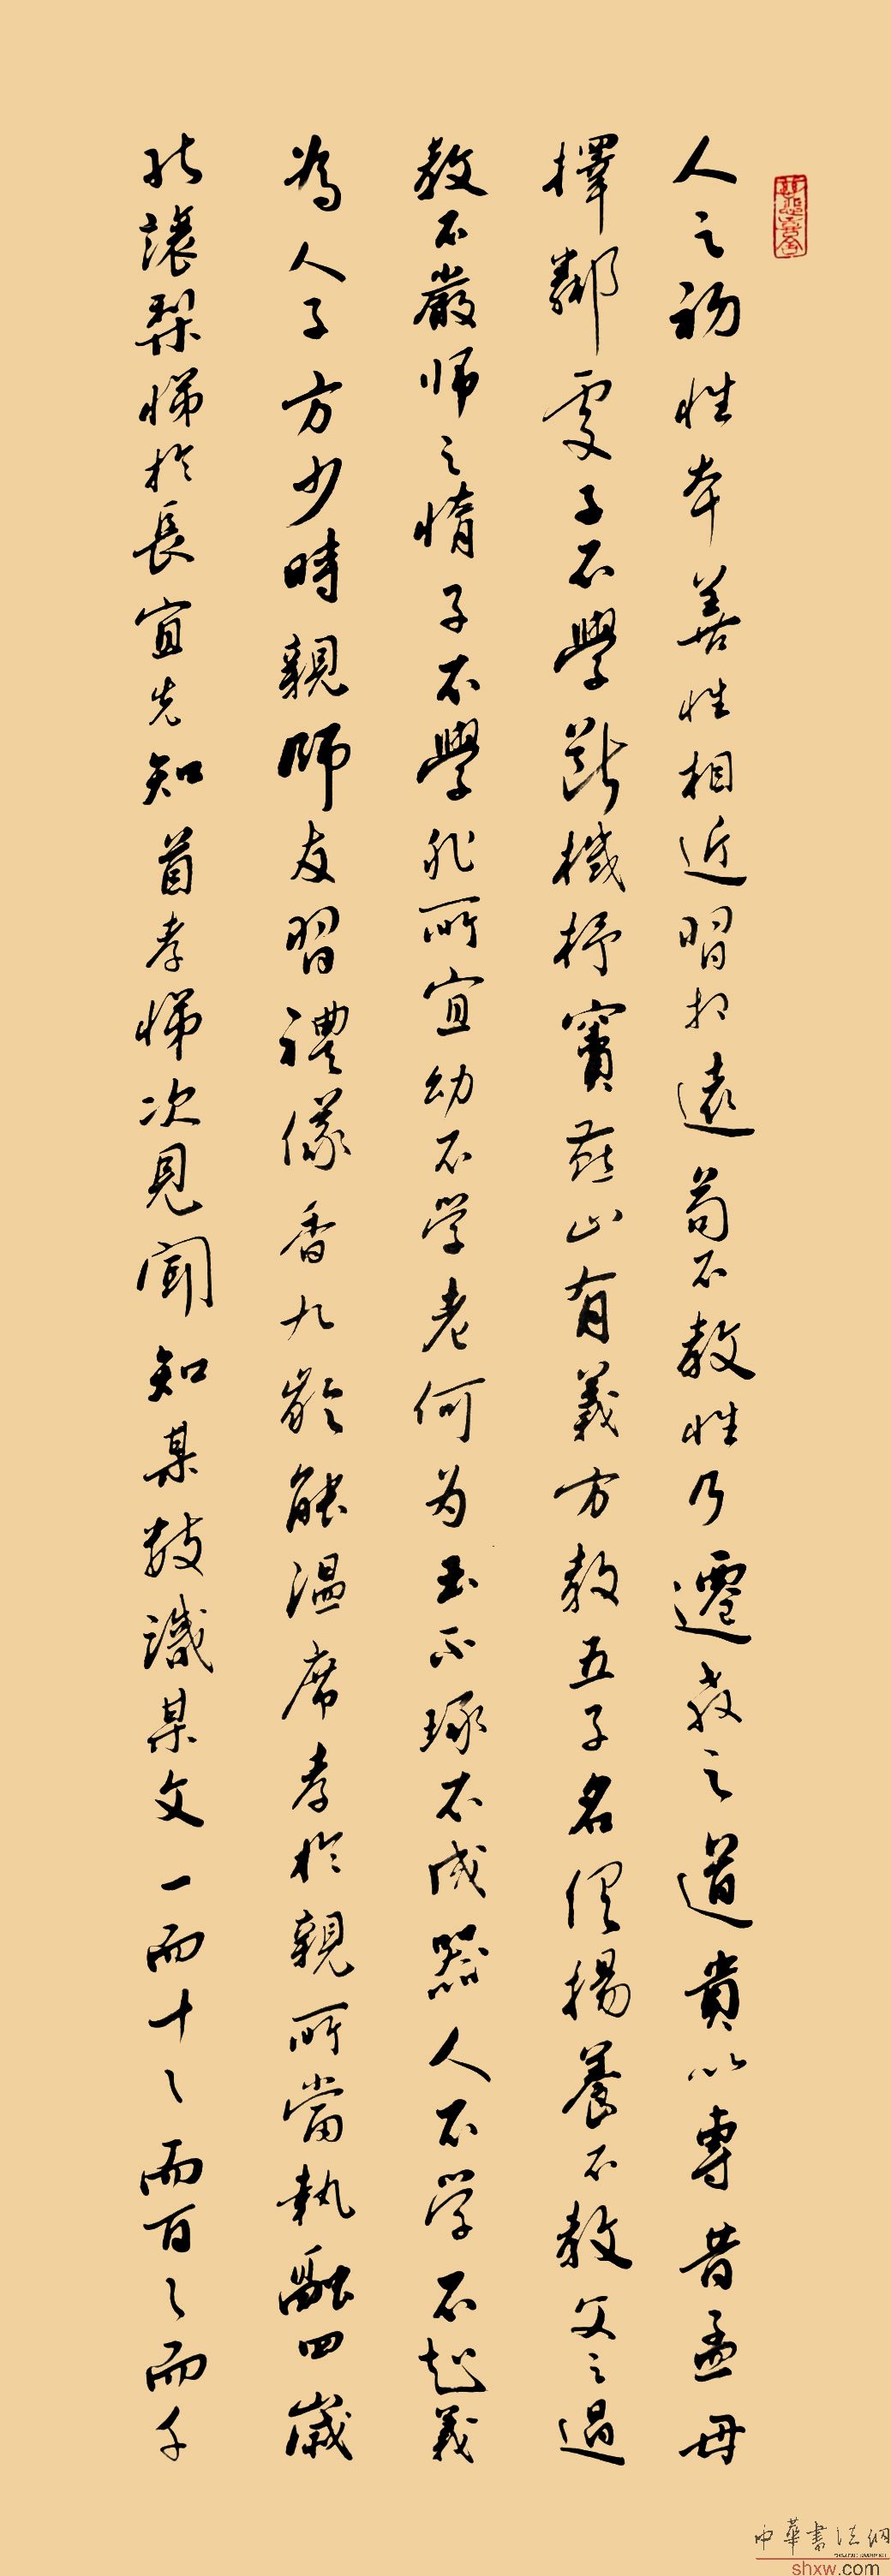 人之初性本善性相近習相遠苟不教性乃遷教之道貴以專昔孟母
擇鄰處子不學斷機杼竇燕山有義方教五子名俱揚養不教父之過
教不嚴师之惰子不學非所宜幼不学老何为玉不琢不成器人不学不知義
為人子方少時親師友習禮儀香九齡能温席孝於親所當執融四歲
能讓梨悌於長宜先知首孝悌次見聞知某數識某文一而十々而百々而千
中華書法網
shxw.com